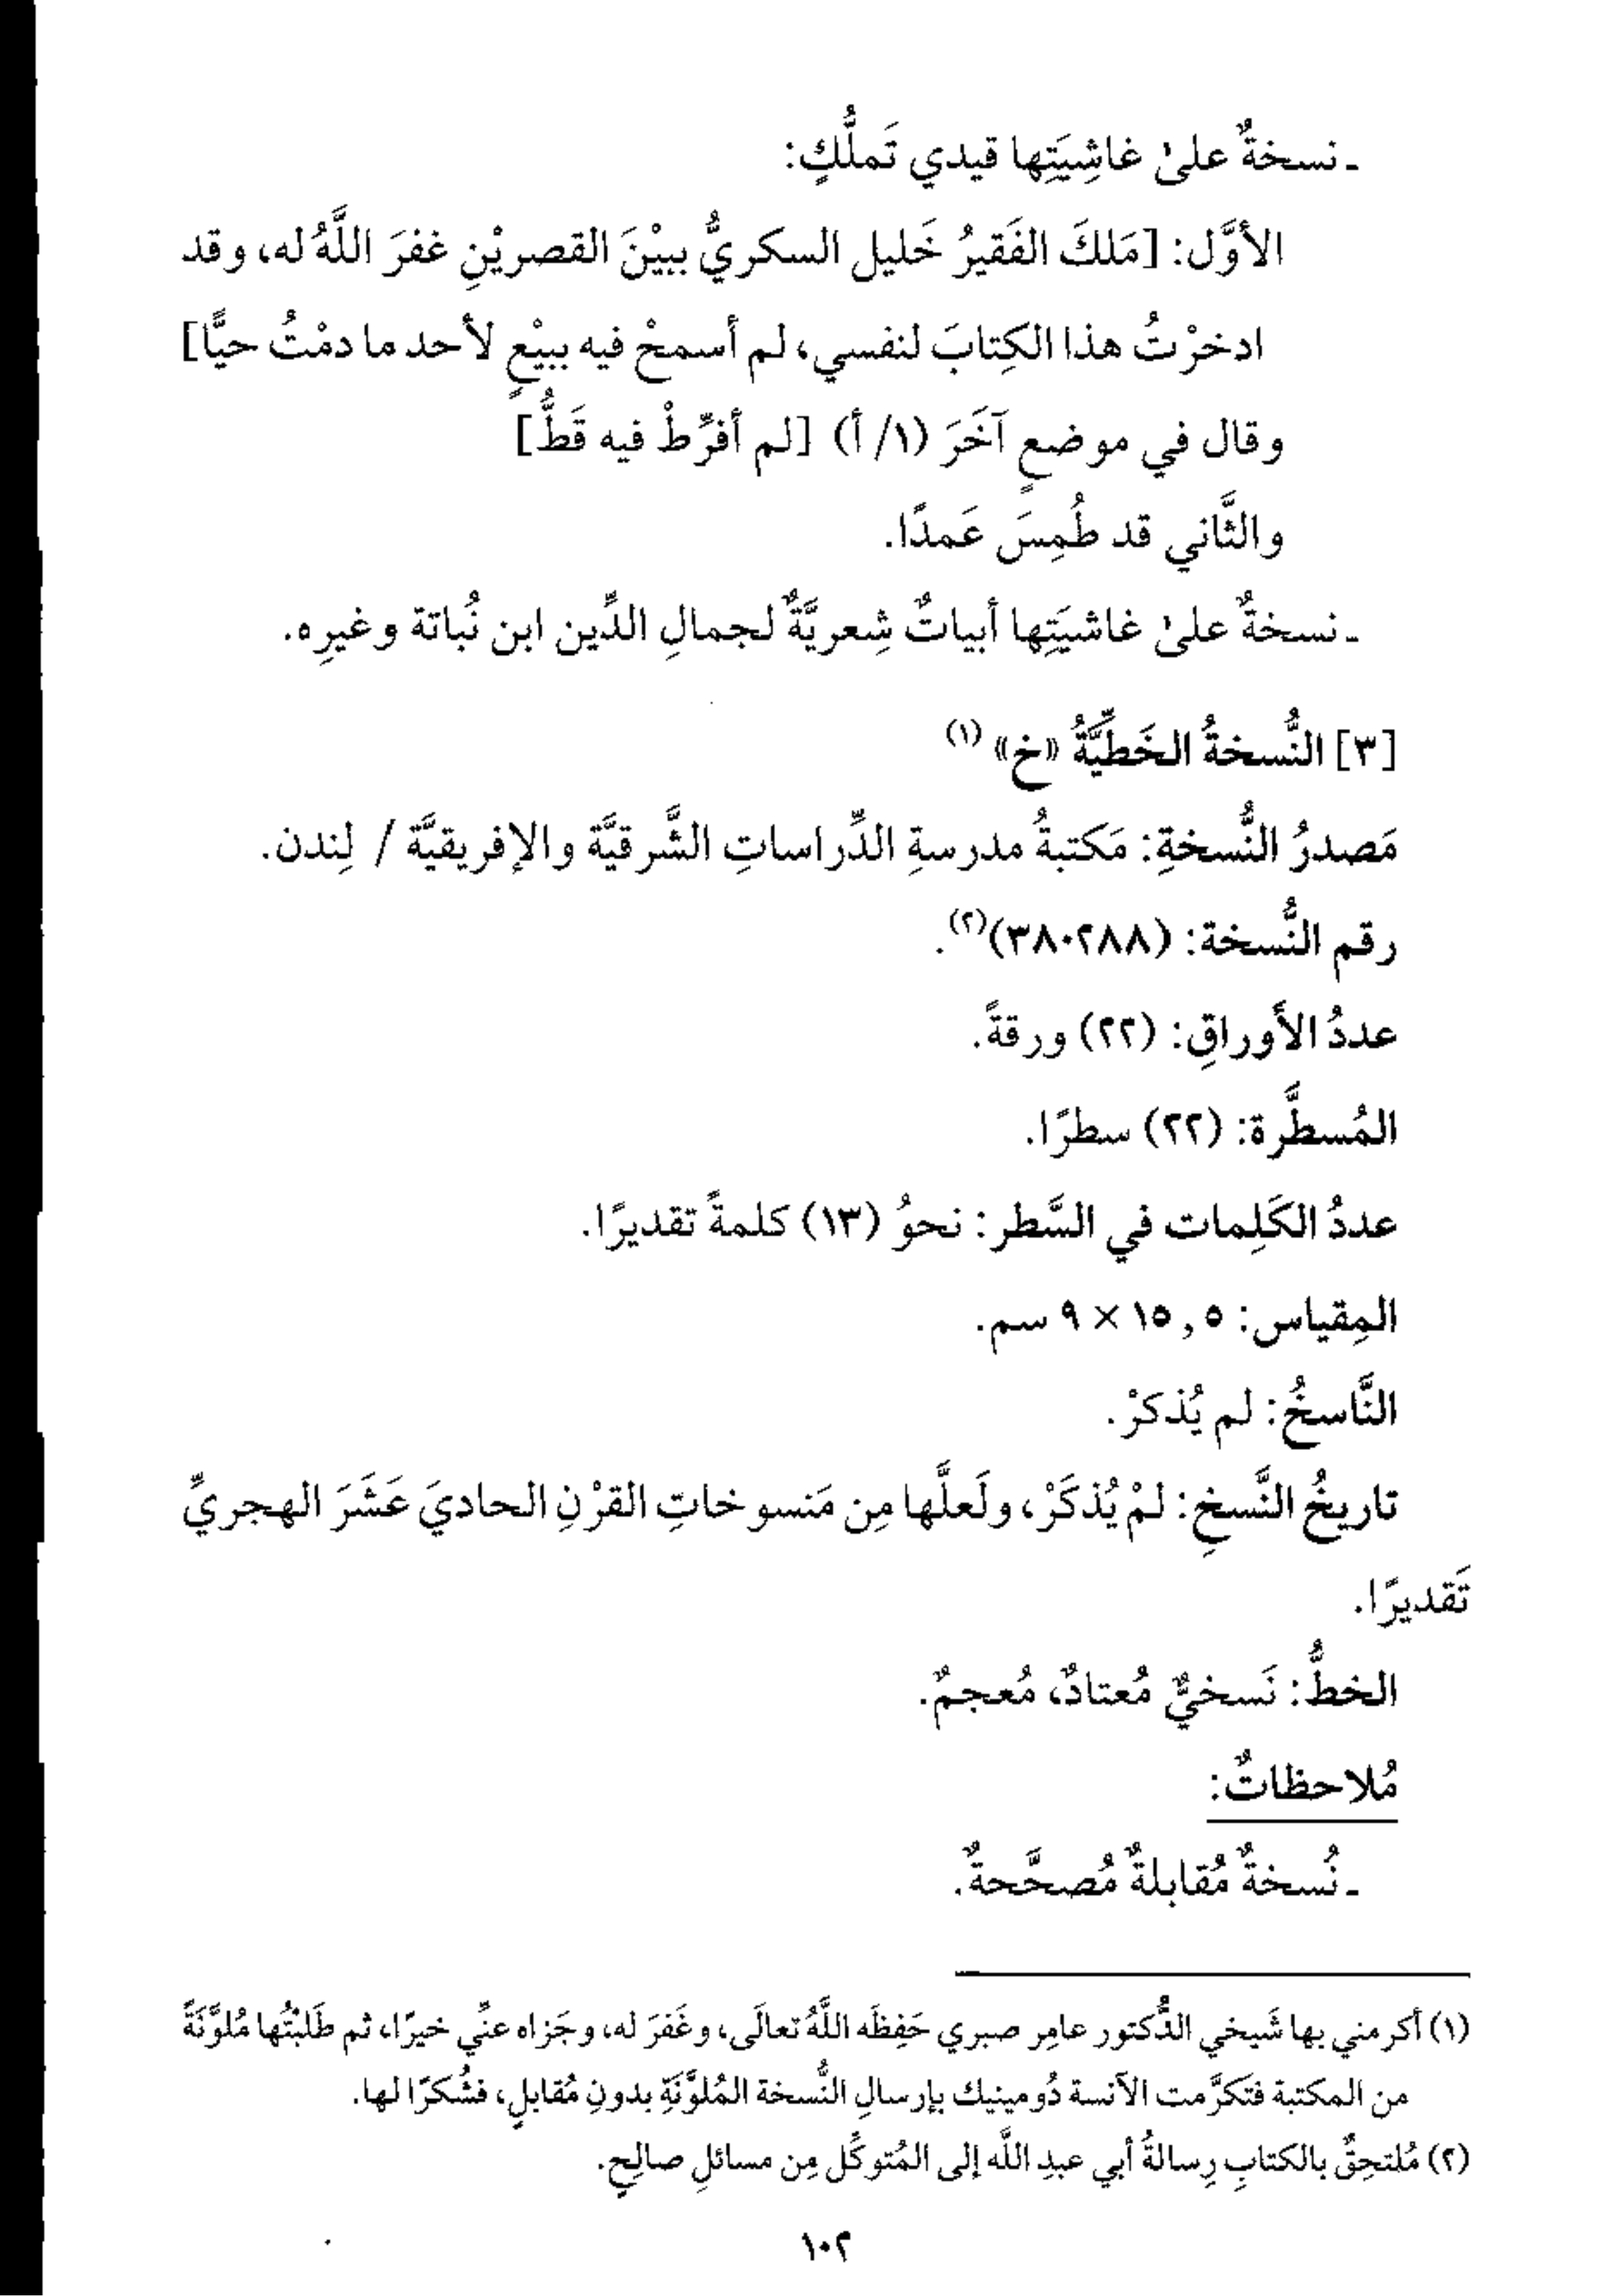 ـ نسخةٌ علىٰ غاشِيَتِها قيدي تَملُّكٍ:
الأوَّل: [مَلكَ الفَقيرُ خَليل السكريُّ ببيْنَ القصريْنِ غفرَ اللَّهُ له، وقد
ادخرْتُ هذا الكِتابَ لنفسي، لم أسمحْ فيه ببيْعٍ لأحد ما دمْتُ حيًّا]
وقال في موضعٍ آخَرَ (١/ أ) [لم أفرِّطْ فيه قَطُّ]
والثَّاني قد طُمِسَ عَمدًا.
ـ نسخةٌ علىٰ غاشيَتِها أبياتٌ شِعريَّةٌ لجمالِ الدِّين ابن نُباتة وغيرِه.
[٣] النُّسخةُ الخَطِّيَّةُ «خ» (١)
مَصدرُ النُّسخةِ: مَكتبةُ مدرسةِ الدِّراساتِ الشَّرقيَّة والإفريقيَّة / لِندن.
رقم النُّسخة: (٣٨٠٢٨٨)(٢).
عددُ الأَوراقِ: (٢٢) ورقةً.
المُسطَّرة: (٢٢) سطرًا.
عددُ الكَلِمات في السَّطر: نحوُ (١٣) كلمةً تقديرًا.
المِقياس: ١٥,٥ × ٩ سم.
النَّاسخُ: لم يُذكرْ.
تاريخُ النَّسخِ: لمْ يُذكَرْ، ولَعلَّها مِن مَنسوخاتِ القرْنِ الحاديَ عَشَرَ الهجريِّ
تَقديرًا.
الخطُّ: نَسخيٌّ مُعتادٌ، مُعجمٌ.
مُلاحظاتٌ:
ـ نُسخةٌ مُقابلةٌ مُصحَّحةٌ.
(١) أكرمني بها شَيخي الدُّكتور عامِر صبري حَفِظَه اللَّهُ تعالَى، وغَفرَ له، وجَزاه عنِّي خيرًا، ثم طَلبْتُها مُلوَّنَةً
من المكتبة فتَكرَّمت الآنسة دُومينيك بإرسالِ النُّسخة المُلوَّنَةِ بدونِ مُقابلٍ، فشُكرًا لها.
(٢) مُلتحِقٌ بالكتابِ رِسالةُ أبي عبدِ اللَّه إلى المُتوكِّل مِن مسائلِ صالحٍ.
١٠٢